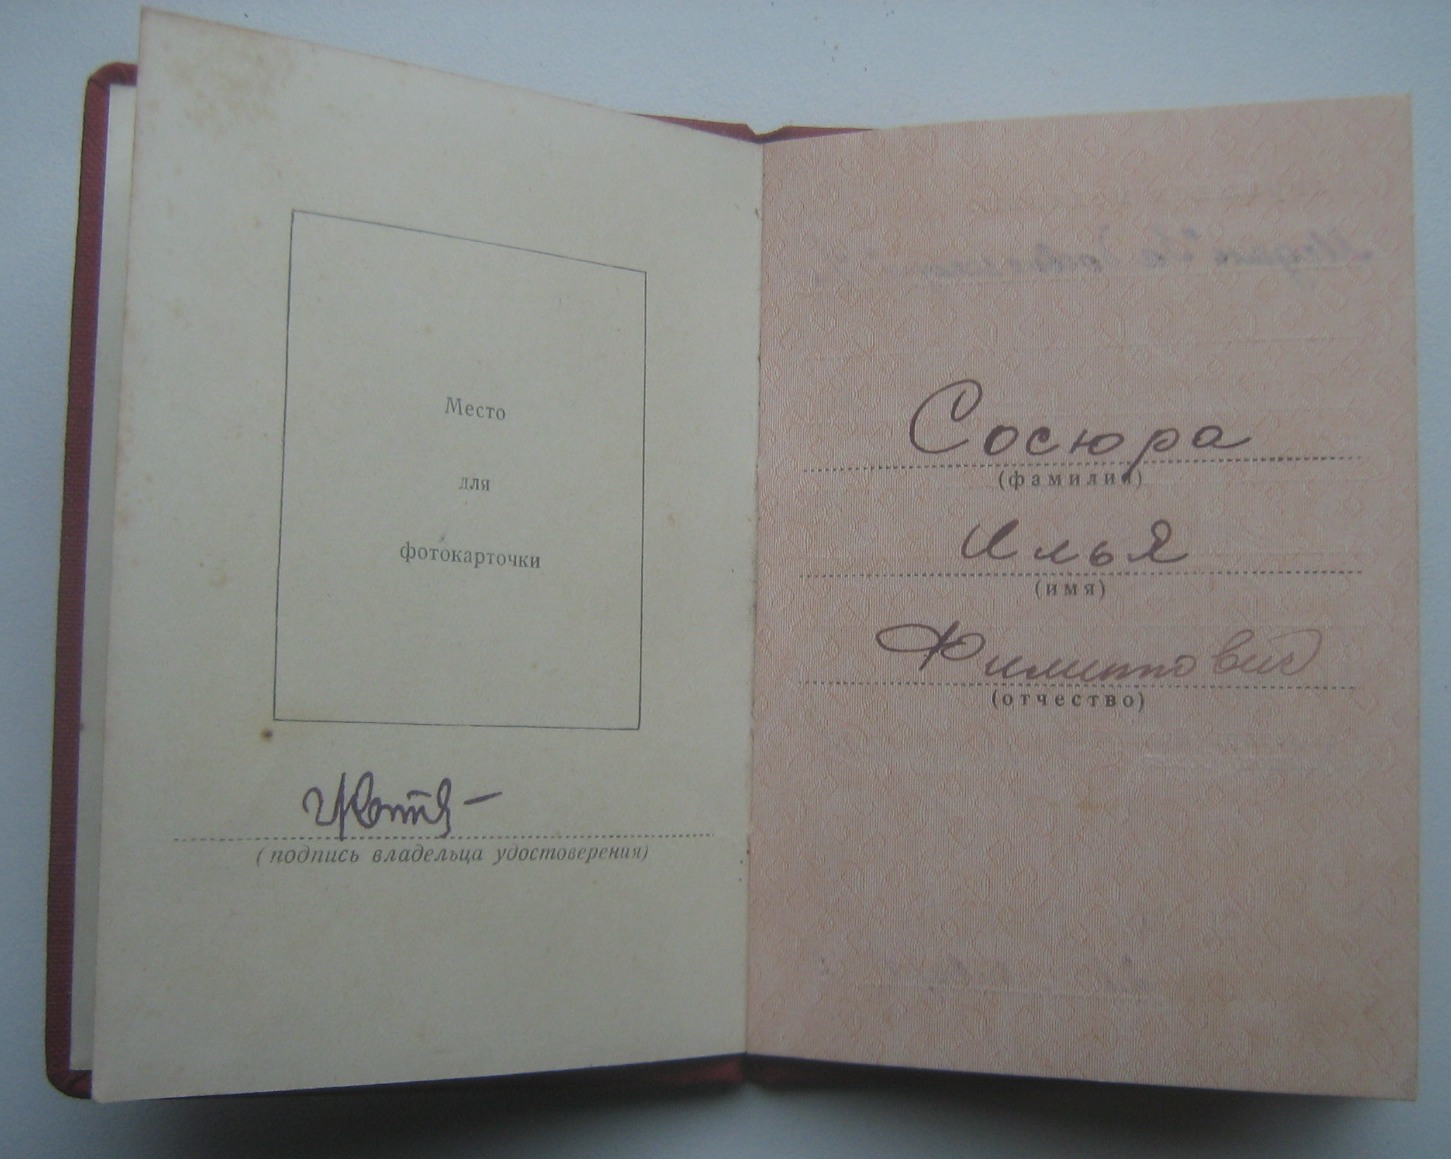 Место
для
фотокарточки
(подпись владельца удостоверения)
Сосюра
(фамилия)
Илья
(имя)
Филиппович
(отчество)